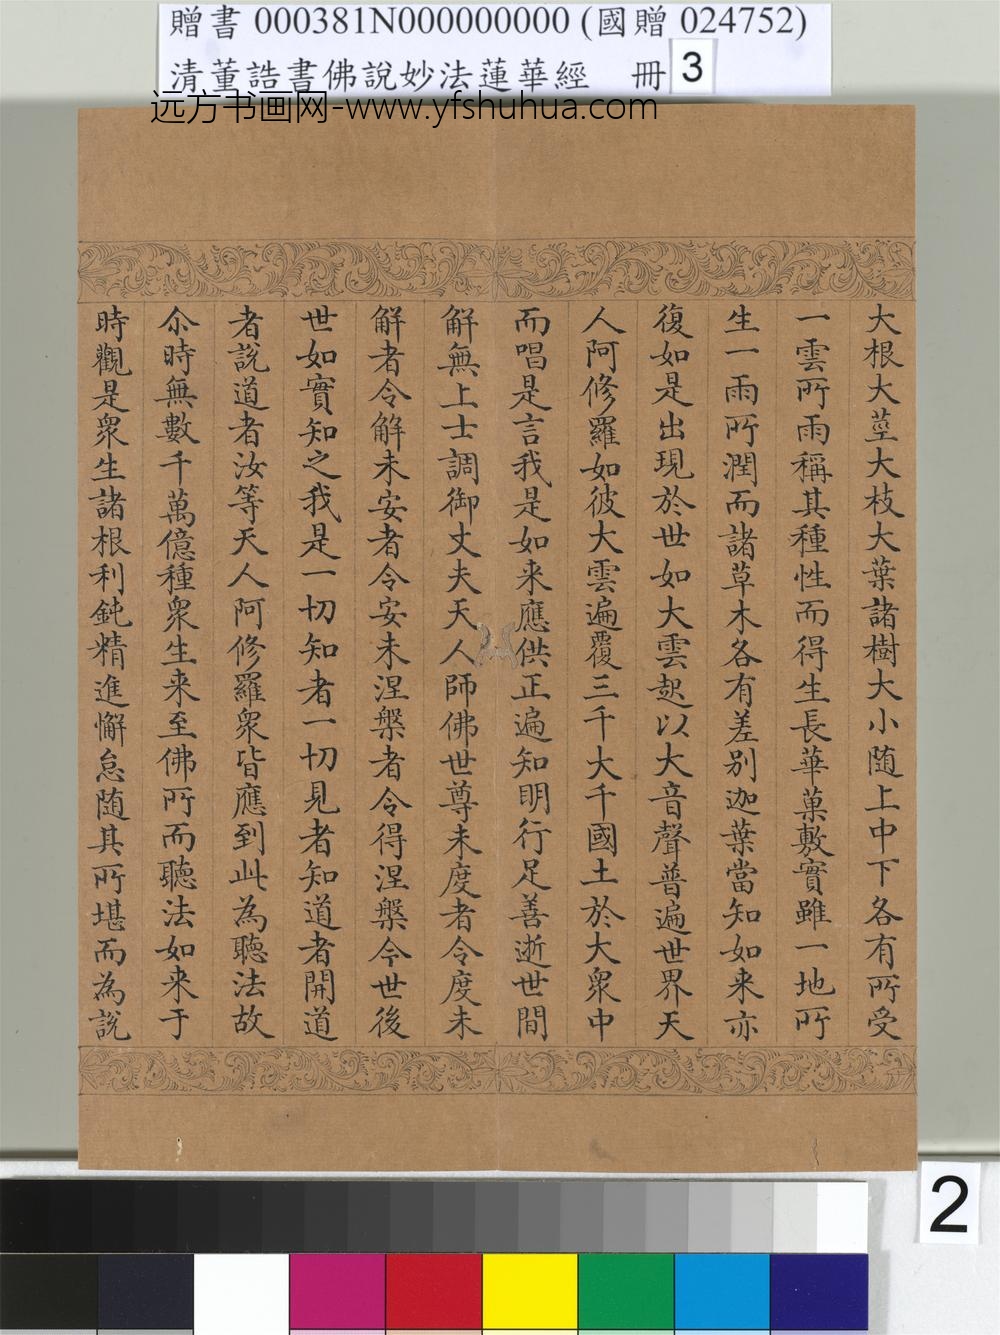 贈書 000381N000000000 (國贈 024752)
清董誥書佛說妙法蓮華經 冊 3
远方书画网-www.yfshuhua.com
大根大莖大枝大葉諸樹大小随上中下各有所受
一雲所雨稱其種性而得生長華菓敷實雖一地所
生一雨所潤而諸草木各有差別迦葉當知如来亦
復如是出現於世如大雲起以大音聲普遍世界天
人阿修羅如彼大雲遍覆三千大千國土於大衆中
而唱是言我是如来應供正遍知明行足善逝世間
解無上士調御丈夫天人師佛世尊未度者令度未
解者令解未安者令安未涅槃者令得涅槃今世後
世如實知之我是一切知者一切見者知道者開道
者說道者汝等天人阿修羅衆皆應到此為聽法故
尒時無數千萬億種衆生来至佛所而聽法如来于
時觀是衆生諸根利鈍精進懈怠随其所堪而為說
2